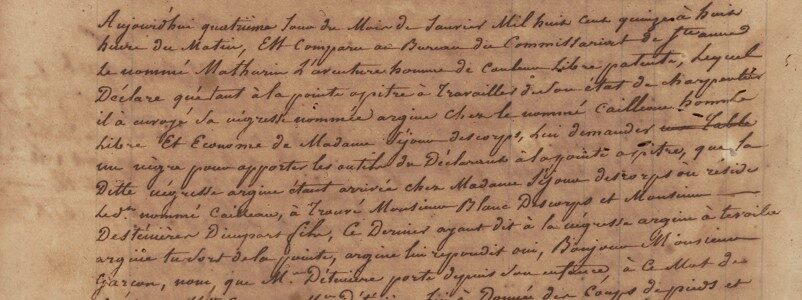 Aujourd'hui quatrieme Jour du Mois de Janvier Mil huit cent quinze à huit
heure du Matin, Est Comparu au Bureau du Commissariat de Ste anne
Le nommé Mathurin L'aventure homme de Couleur Libre patenté, Lequel
Déclare qu'étant à la pointe apitre à Travailler de son état de charpentier
il à envoyé sa négresse nommée argine chez le nommé Cailleau homme
Libre Et Econome de Madame Séjour descorps, lui demander
un nègre pour apporter les outils du Déclarant à la pointe apitre, que la
Ditte négresse argine étant arrivée chez Madame Séjour descorps ou reside
Ledt. nommé Cailleau, à Trouvé Monsieur Blanc Descorps et Monsieur
fils, Ce Dernier ayant dit à la négresse argine
argine tu sort de la pointe, argine lui repondit oui, Bonjour Monsieur
Garçon, nom, que M. porte depuis son enfance, à Ce Mot de
Donnée des Coups de pieds et